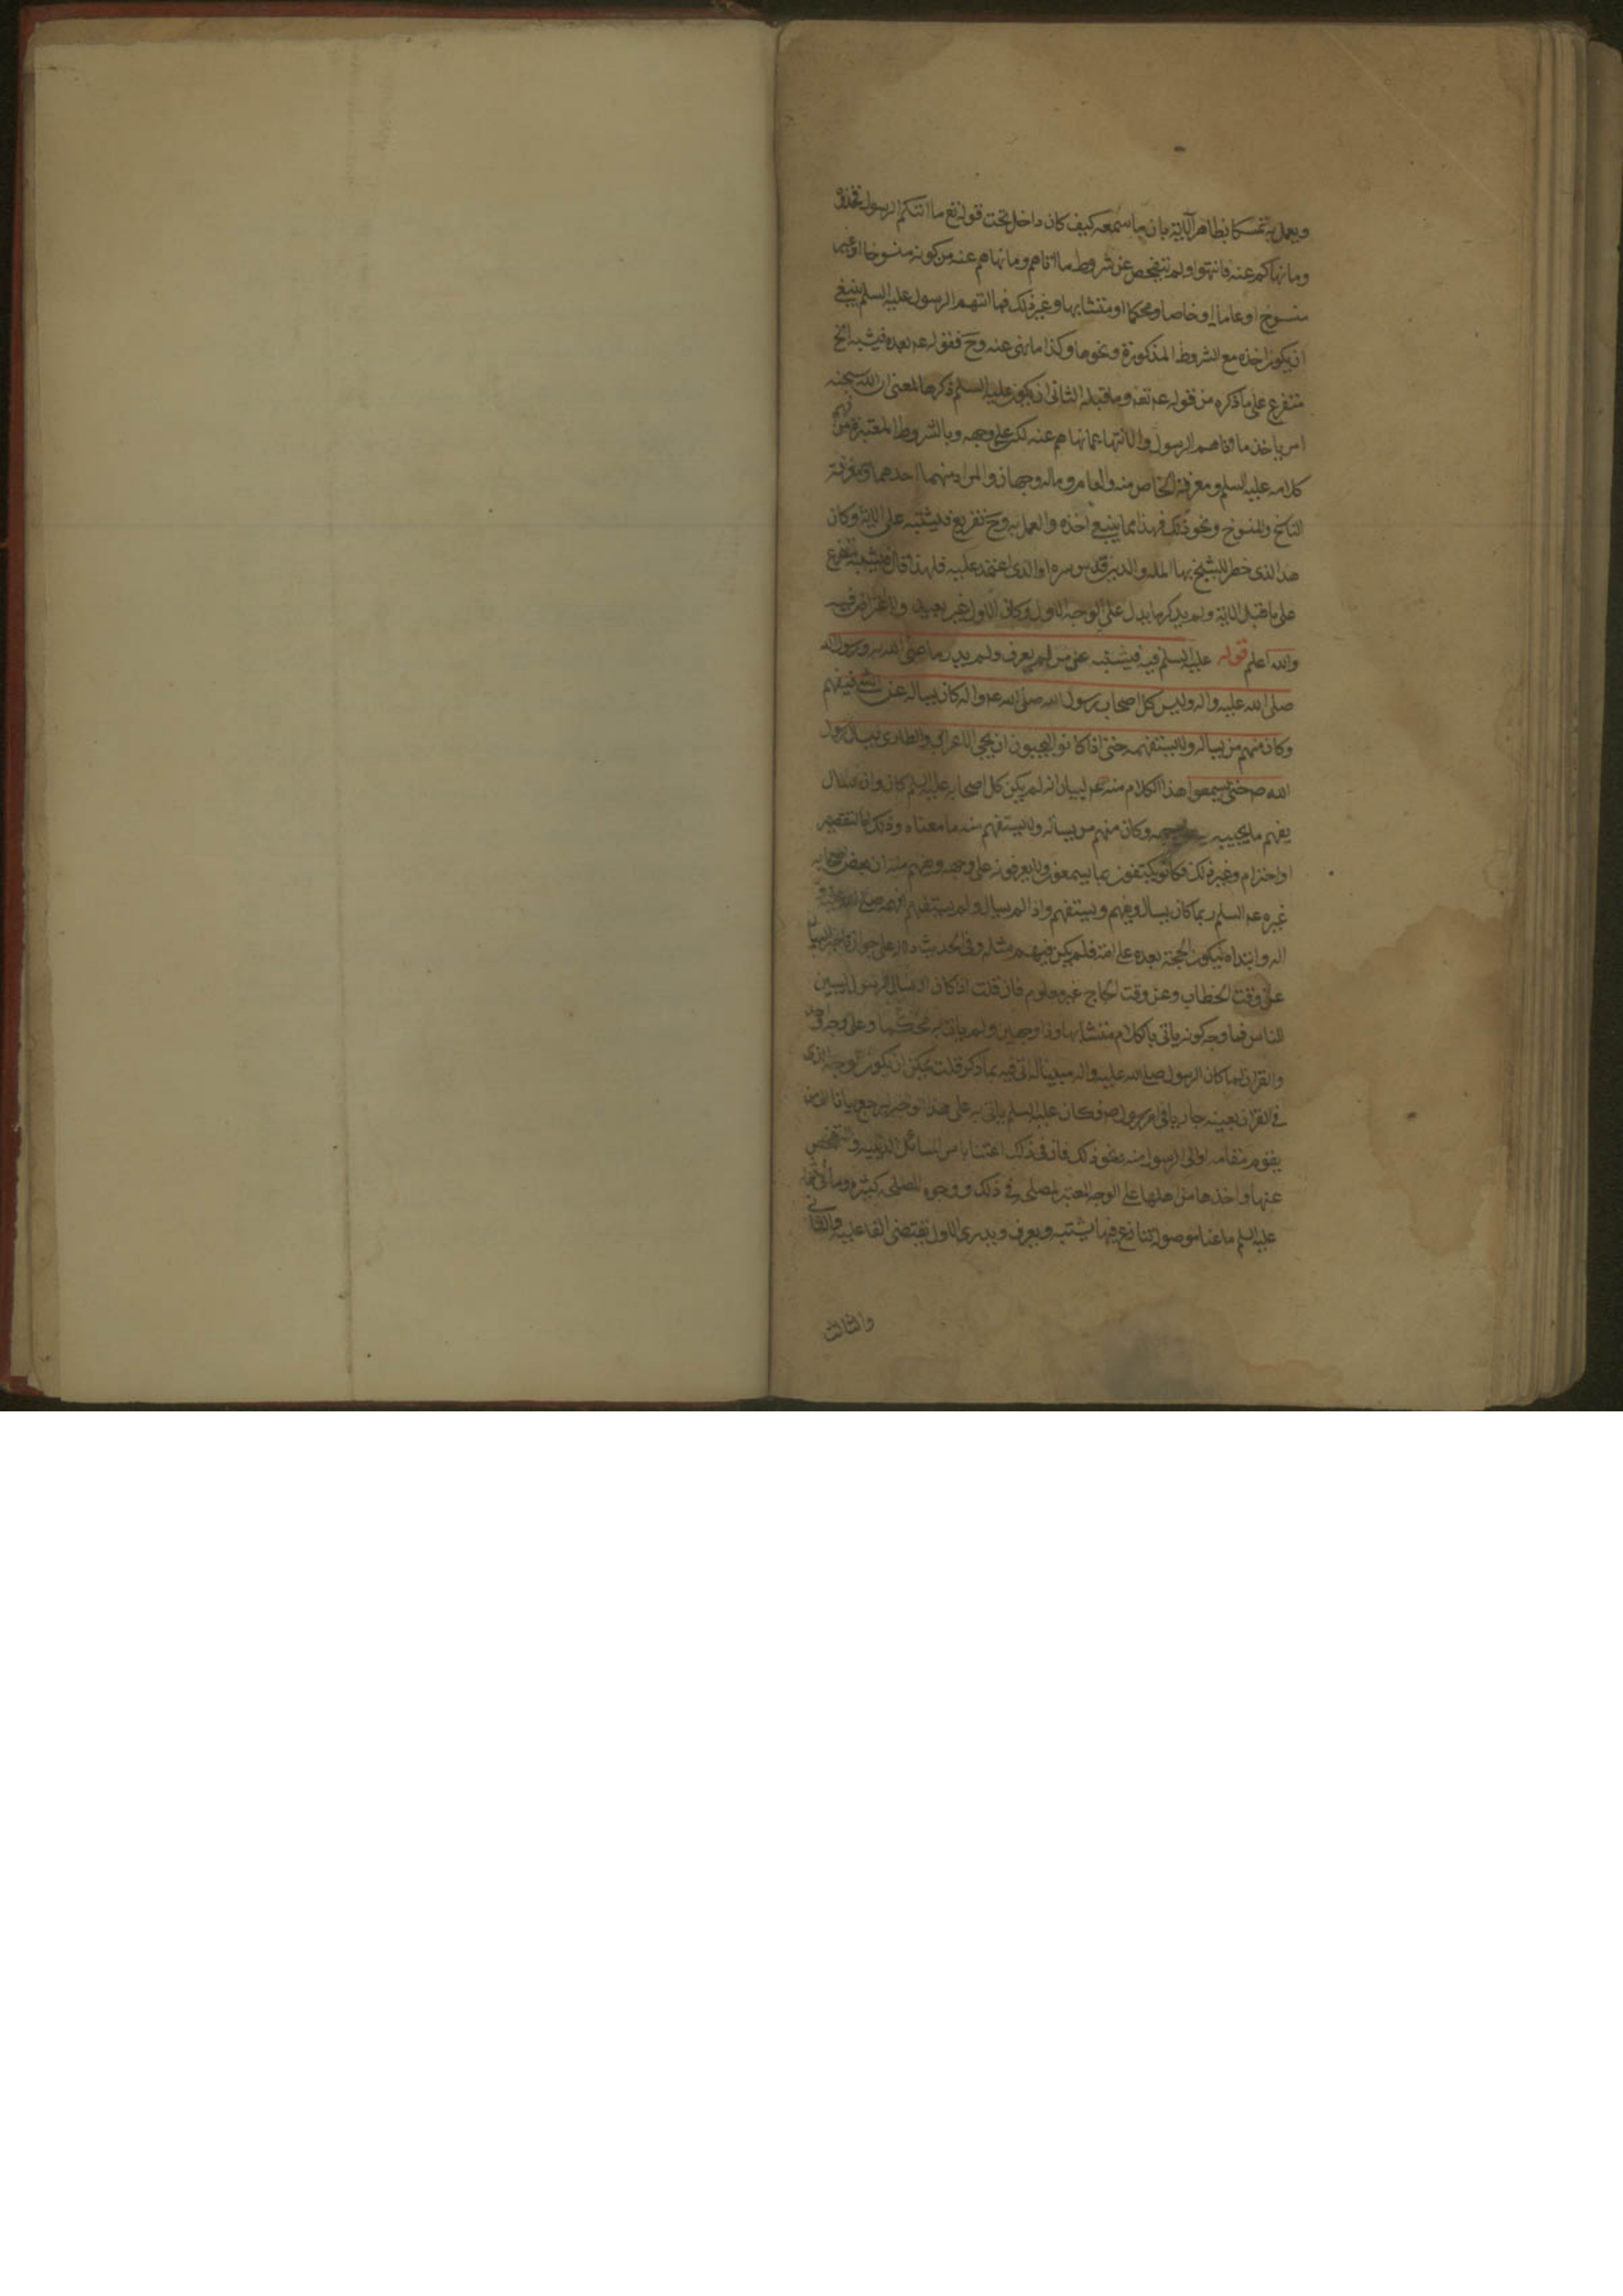 ويعمل به تمسكا بظاهر الآية بان ما سمعه كيف كان داخل تحت قوله تع ما اتتكم الرسول فخذوه
وما نهاكم عنه فانتهوا ولم يتفحص عن شروط ما اتاهم وما نهاهم عنه من كونه منسوخا او غير
منسوخ او عاما او خاصا ومحكما او متشابها وغير ذلك فما اتتهم الرسول عليه السلم ينبغي
ان يكون اخذه مع الشروط المذكورة ونحوها وكذا ما نهى عنه وح فقوله عم بعده فيشبه الخ
متفرع على ما ذكره من قوله عم وما قبله الثاني ان يكون عليه السلم ذكرها لمعنى ان الله سبحنه
امر باخذ ما اتاهم الرسول والانتهاء عما نهاهم عنه لكن على وجهه وبالشروط المعتبرة من فهم
كلامه عليه السلم ومعرفة الخاص منه والعام وماله وجهان والمراد منهما احدهما ومعرفة
الناسخ والمنسوخ ونحو ذلك فهذا مما ينبغي اخذه والعمل به وح تفريع فيشتبه على الاية وكان
هذا الذي خطر للشيخ بهاء المله والدين قدس سره او الذي اعتمد عليه فلهذا قال فيشتبه متفرع
على ما قبل الاية ولم يذكر ما يدل على الوجه الاول وكان الاول غير بعيد ولا اعتراض فيه
والله اعلم قوله عليه السلم فيه فيشتبه على من لم يعرف ولم يدر ما عنى الله به ورسوله
صلى الله عليه واله وليس كل اصحاب رسول الله صلى الله عليه واله كان يساله عن الشئ فيفهم
وكان منهم من يساله ولا يستفهمه حتى ان كانوا ليحبون ان يجئ الاعرابي والطاري فيسال رسول
الله ص حتى يسمعوا هذا الكلام منه عم لبيان انه لم يكن كل اصحابه عليه السلم كان وان سال
يفهم ما يجيبه وجهه وكان منهم من يساله ولا يستفهم منه ما معناه وذلك اما لتقصير
او احترام وغير ذلك فكانوا يكتفون بما يسمعون ولا يعرفونه على وجهه ويفهم منه ان بعض اصحابه
غيره عم السلم ربما كان يسال ويفهم ويستفهم واذا لم يسال ولم يستفهم افهمه صلى الله عليه و
اله وابتداه ليكون الحجة بعده على امته فلم يكن فيهم مثله وفي الحديث دلالة على جواز تاخير البيان
عن وقت الخطاب وعن وقت الحاج غير معلوم فان قلت اذا كان ارسال الرسول ليبين
للناس فما وجه كونه ياتي بالكلام متشابها وذا وجهين ولم يات به محكما وعلى وجه واحد
والقران لما كان الرسول صلى الله عليه واله مبينا له اتى فيه بما ذكر قلت يمكن ان يكون الوجه الذي
في القران بعينه جار باقي امر رسول ص فكان عليه السلم ياتي به على هذا الوجه ليرجع بيانا الى من
يقوم مقامه او الى الرسول منه ونحو ذلك فان في ذلك اعتناء باس المسائل الدينيه والتفحص
عنها واخذها من اهلها على الوجه المعتبر لمصلحه في ذلك ووجوه المصلحه كثيره وما في قوله
عليه السلم ما عنا موصوله تنازع فيها يشتبه ويعرف ويدري الاول يقتضي الفاعليه والثاني
والثالث